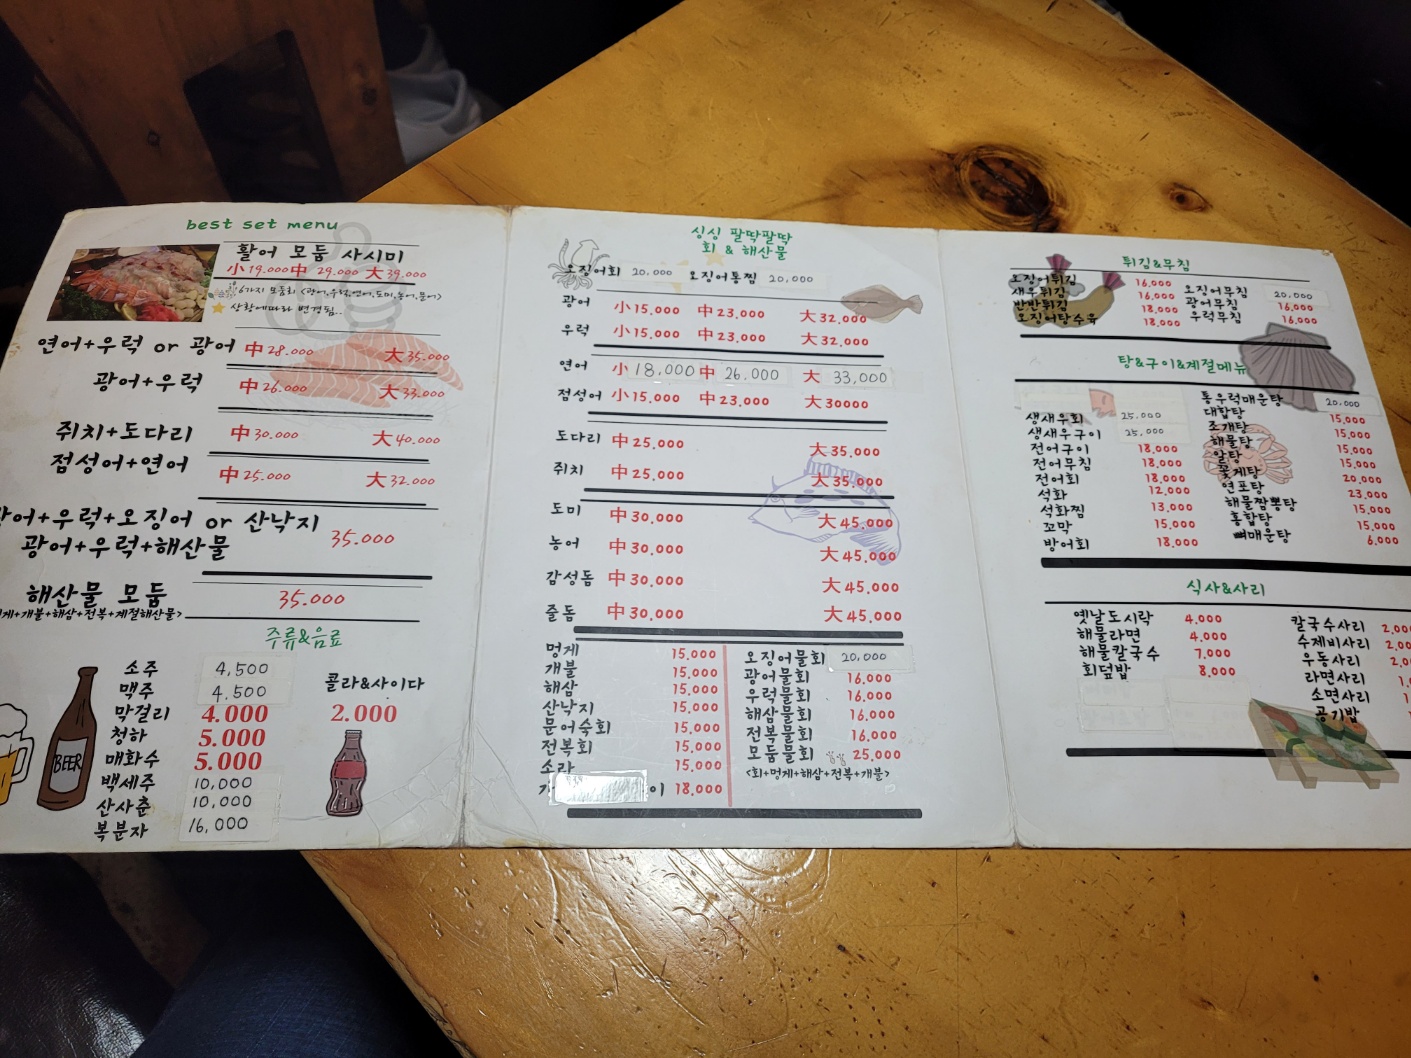 best set menu
활어 모둠 사시미
小 19.000 中 29.000 大 39.000
6가지 모둠회 <광어,우럭,연어,도미,농어,문어>
상황에따라 변경됨..
연어+우럭 or 광어 中 28.000 大 35.000
광어+우럭 中 26.000 大 33.000
쥐치+도다리 中 30.000 大 40.000
점성어+연어 中 25.000 大 32.000
광어+우럭+오징어 or 산낙지
광어+우럭+해산물 35.000
해산물 모둠 35.000
+개불+해삼+전복+계절해산물>
주류&음료
소주 4,500
맥주 4,500
막걸리 4.000
청하 5.000
매화수 5.000
백세주 10,000
산사춘 10,000
복분자 16,000
콜라&사이다
2.000
BEER
싱싱 팔딱팔딱
회 & 해산물
오징어회 20,000 오징어통찜 20,000
광어 小 15.000 中 23.000 大 32.000
우럭 小 15.000 中 23.000 大 32.000
연어 小 18,000 中 26,000 大 33,000
점성어 小 15.000 中 23.000 大 30000
도다리 中 25.000 大 35.000
쥐치 中 25.000 大 35.000
도미 中 30.000 大 45.000
농어 中 30.000 大 45.000
감성돔 中 30.000 大 45.000
줄돔 中 30.000 大 45.000
멍게 15,000
개불 15,000
해삼 15,000
산낙지 15,000
문어숙회 15,000
전복회 15,000
소라 15,000
이 18,000
오징어물회 20,000
광어물회 16,000
우럭물회 16,000
해삼물회 16,000
전복물회 16,000
모둠물회 25,000
<회+멍게+해삼+전복+개불>
튀김&무침
오징어튀김 16,000
새우튀김 16,000
반반튀김 18,000
오징어탕수육 18,000
오징어무침 20,000
광어무침 16,000
우럭무침 16,000
탕&구이&계절메뉴
생새우회 25,000
생새우구이 25,000
전어구이 18,000
전어무침 18,000
전어회 18,000
석화 12,000
석화찜 13,000
꼬막 15,000
방어회 18,000
통우럭매운탕 20,000
대합탕 15,000
조개탕 15,000
해물탕 15,000
알탕 15,000
꽃게탕 20,000
연포탕 23,000
해물짬뽕탕 15,000
홍합탕 15,000
뼈매운탕 6,000
식사&사리
옛날도시락 4,000
해물라면 4,000
해물칼국수 7,000
회덮밥 8,000
칼국수사리
수제비사리
우동사리
라면사리
소면사리
공기밥